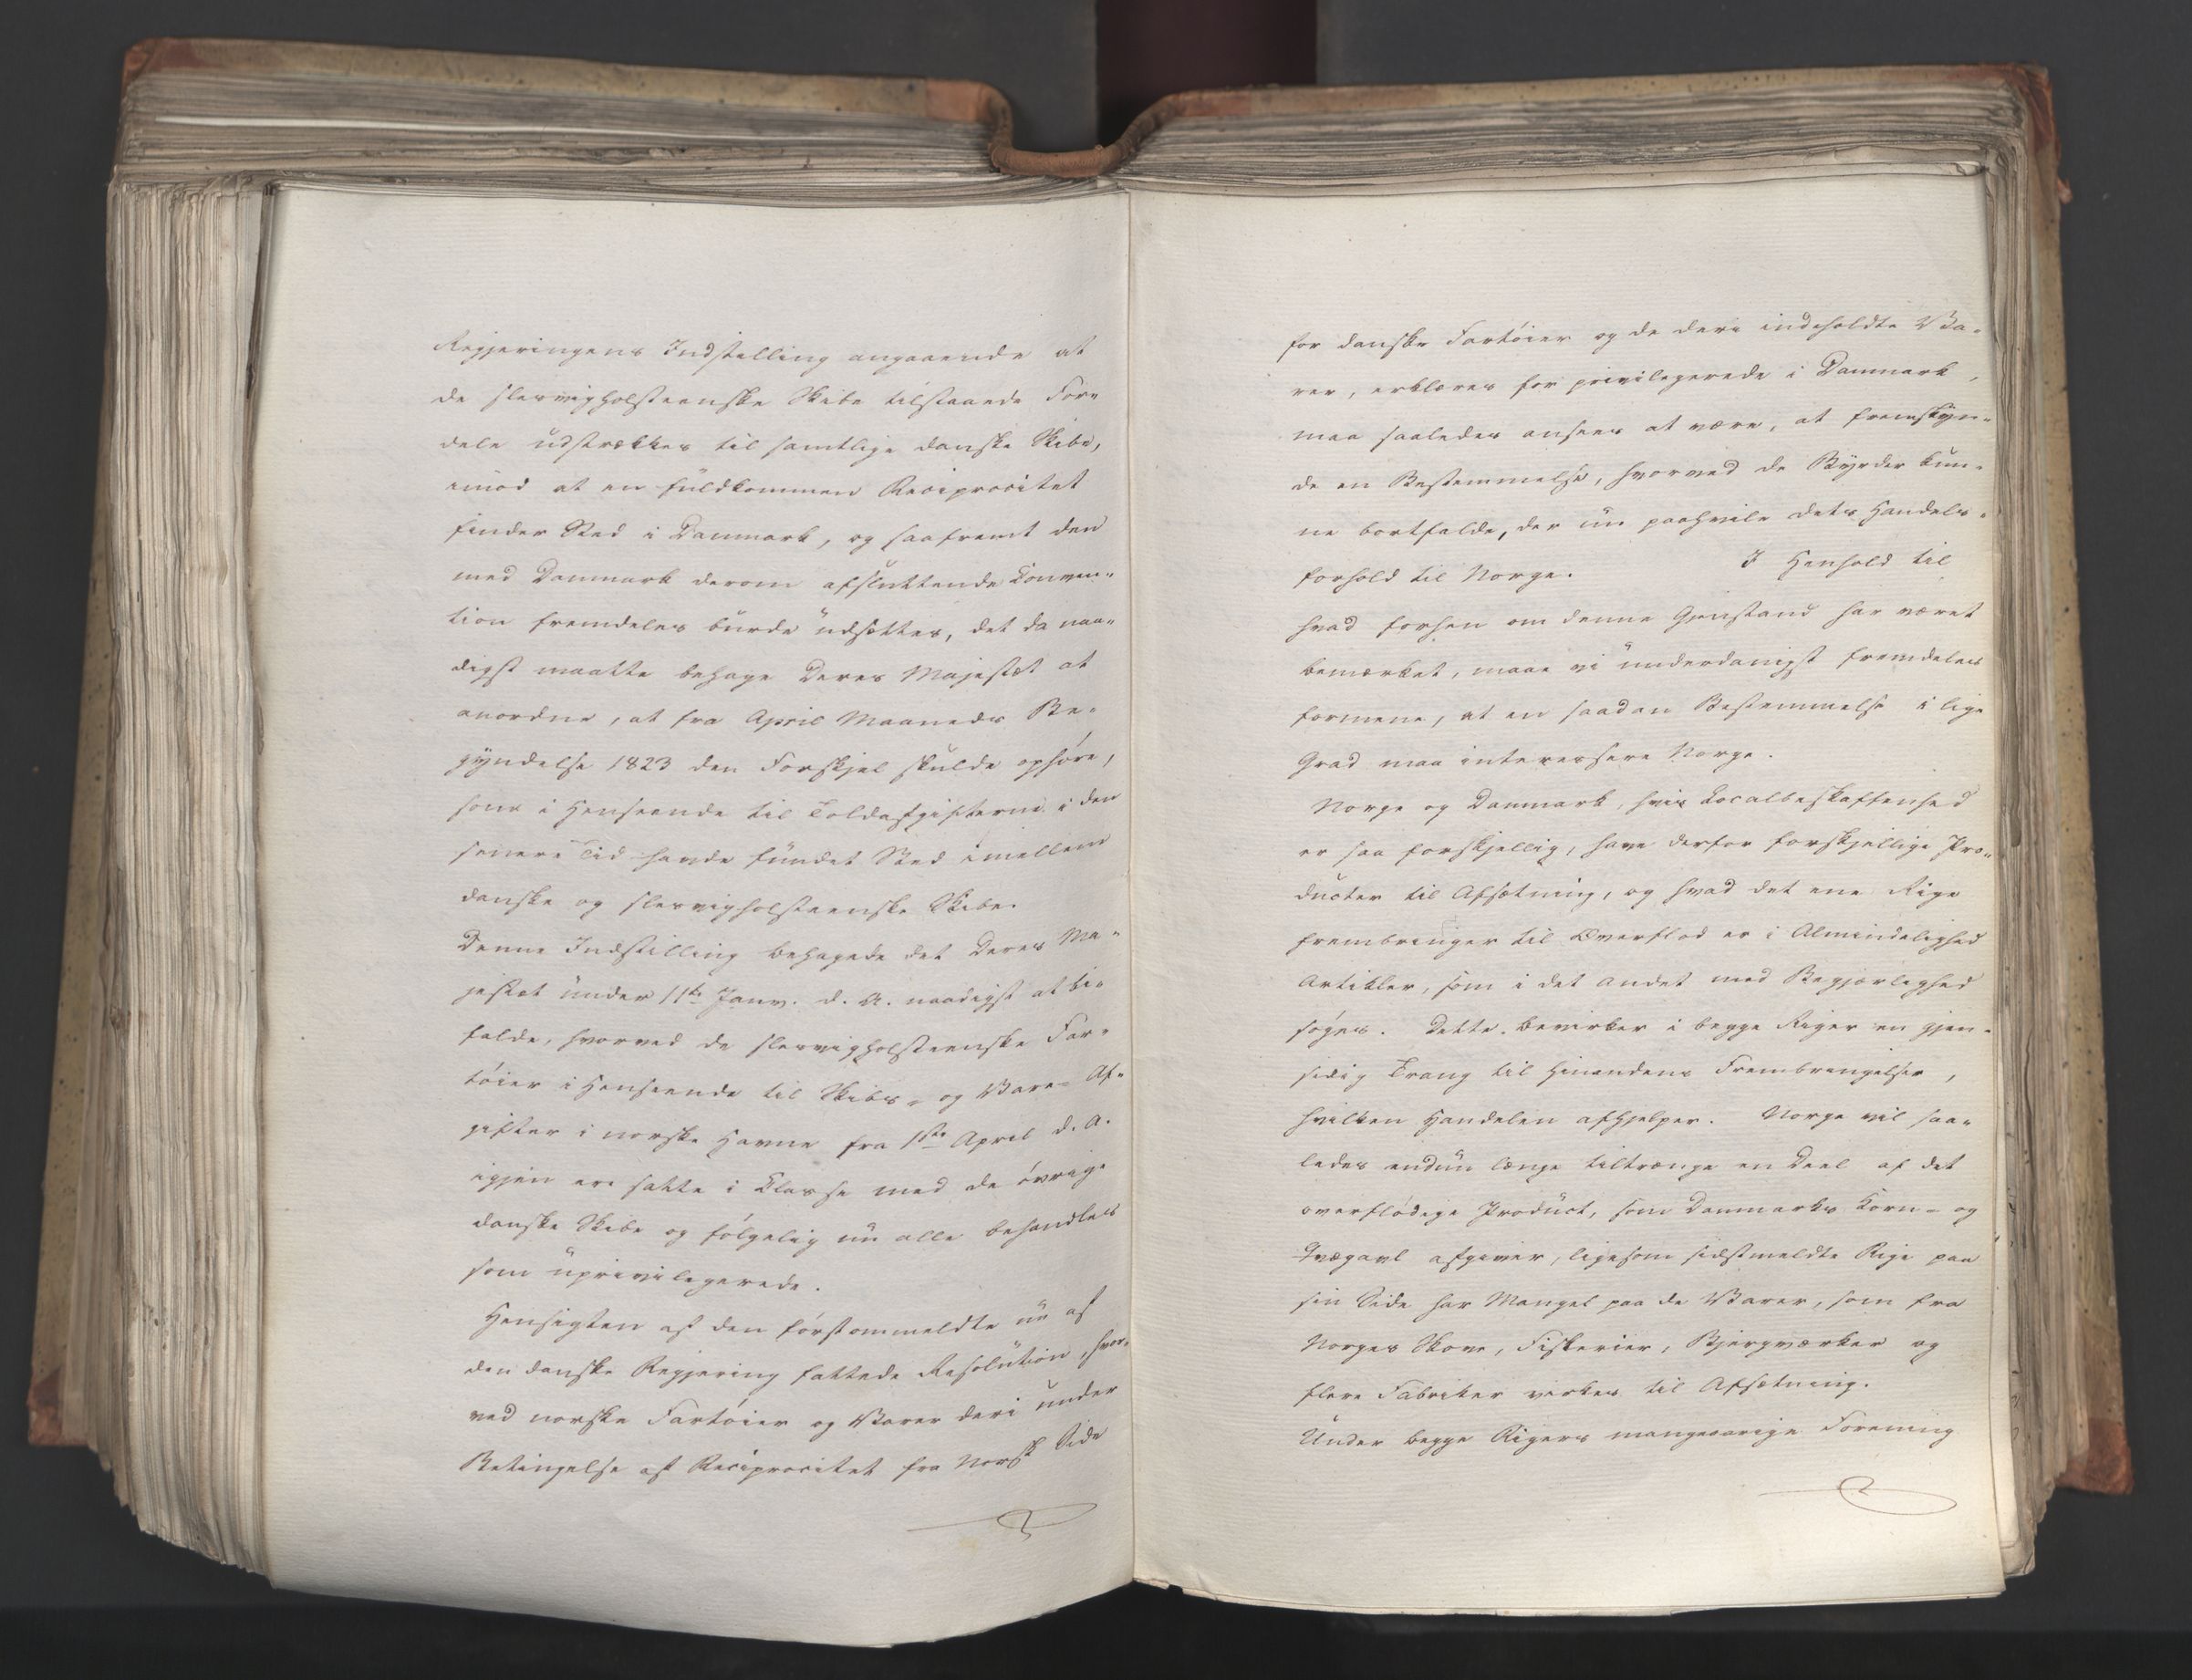 Regjeringens Indstilling angaaende at
de slesvigholsteenske Skibe tilstaaede For-
dele udstrækkes til samtlige danske Skibe,
imod at en fuldkommen Reciprocitet
finder Sted i Danmark, og saafremt den
med Danmark derom afsluttende Conven-
tion fremdeles burde udsættes, det da naa-
digst maatte behage Deres Majestæt at
anordne, at fra April Maaneds Be-
gyndelse 1823 den Forskjel skulde ophøre,
som i Henseende til Toldafgifterne i den
senere Tid havde fundet Sted imellem
danske og slesvigholsteenske Skibe.
Denne Indstilling behagede det Deres Ma-
jestæt under 11te Janv. d. A. naadigst at bi-
falde, hvorved de slesvigholsteenske Far-
tøier i Henseende til Skibs- og Vare-Af-
gifter i norske Havne fra 1ste April d. A.
igjen ere satte i Classe med de øvrige
danske Skibe og følgelig nu alle behandles
som uprivilegerede.
Hensigten af den førstommeldte nu af
den danske Regjering fattede Resolution, hvor-
ved norske Fartøier og Varer deri under
Betingelse af Reciprocitet fra Norsk Side
for danske Fartøier og de deri indeholdte Va-
rer, erklæres for privilegerede i Danmark,
maa saaledes ansees at være, at fremskyn-
de en Bestemmelse, hvorved de Byrder kun-
ne bortfalde, der nu paahvile dets Handels-
forhold til Norge. I Henhold til
hvad forhen om denne Gjenstand har været
bemærket, maae vi underdanigst fremdeles
formene, at en saadan Bestemmelse i lige
Grad maa interessere Norge.
Norge og Danmark, hvis Localbeskaffenhed
er saa forskjellig, have derfor forskjellige Pro-
ducter til Afsætning, og hvad det ene Rige
frembringer til Overflod er i Almindelighed
Artikler, som i det andet med Begjærlighed
søges. Dette bevirker i begge Riger en gjen-
sidig Trang til Hinandens Frembringelser,
hvilken Handelen afhjelper. Norge vil saa-
ledes endnu længe tiltrænge en Deel af det
overflødige Product, som Danmarks Korn- og
Qvægavl afgiver, ligesom sidstmeldte Rige paa
sin Side har Mangel paa de Varer, som fra
Norges Skove, Fiskerier, Bjergværker og
flere Fabriker virkes til Afsætning.
Under begge Rigers mangeaarige Forening